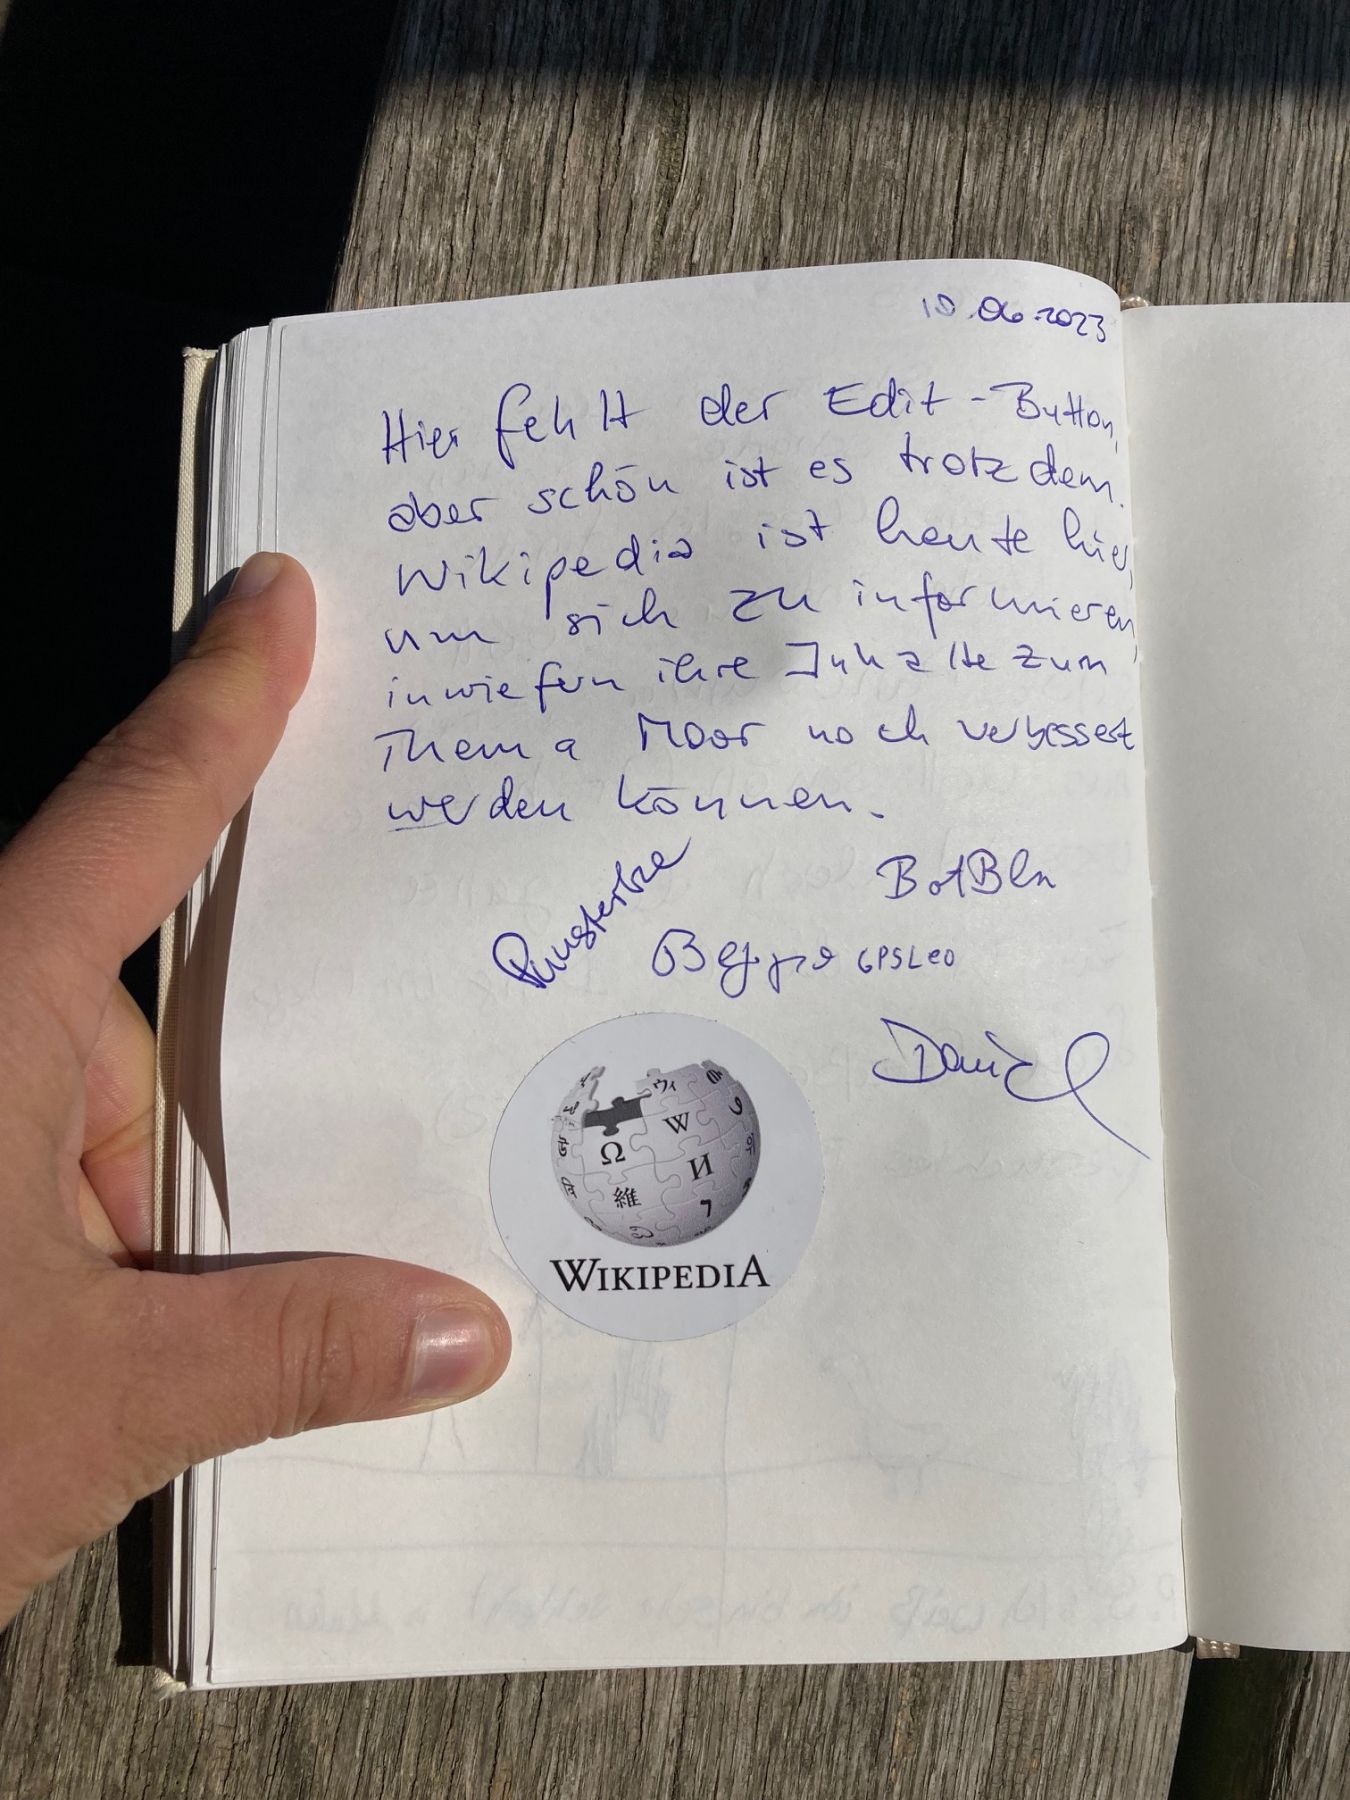 10.06.2023
Hier fehlt der Edit-Button,
aber schön ist es trotzdem.
Wikipedia ist heute hier,
um sich zu informieren,
inwiefern ihre Inhalte zum
Thema Moor noch verbessert
werden können.
BotBln
GPSLeo
Daniel
Ω
W
И
維
7
WIKIPEDIA